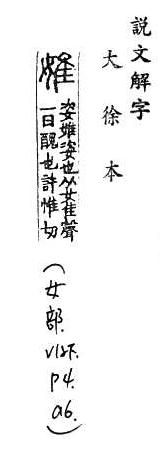 說文解字
大徐本
婎
姿婎姿也从女隹聲
一曰醜也許惟切
(女部. V12下. P4. a6.)